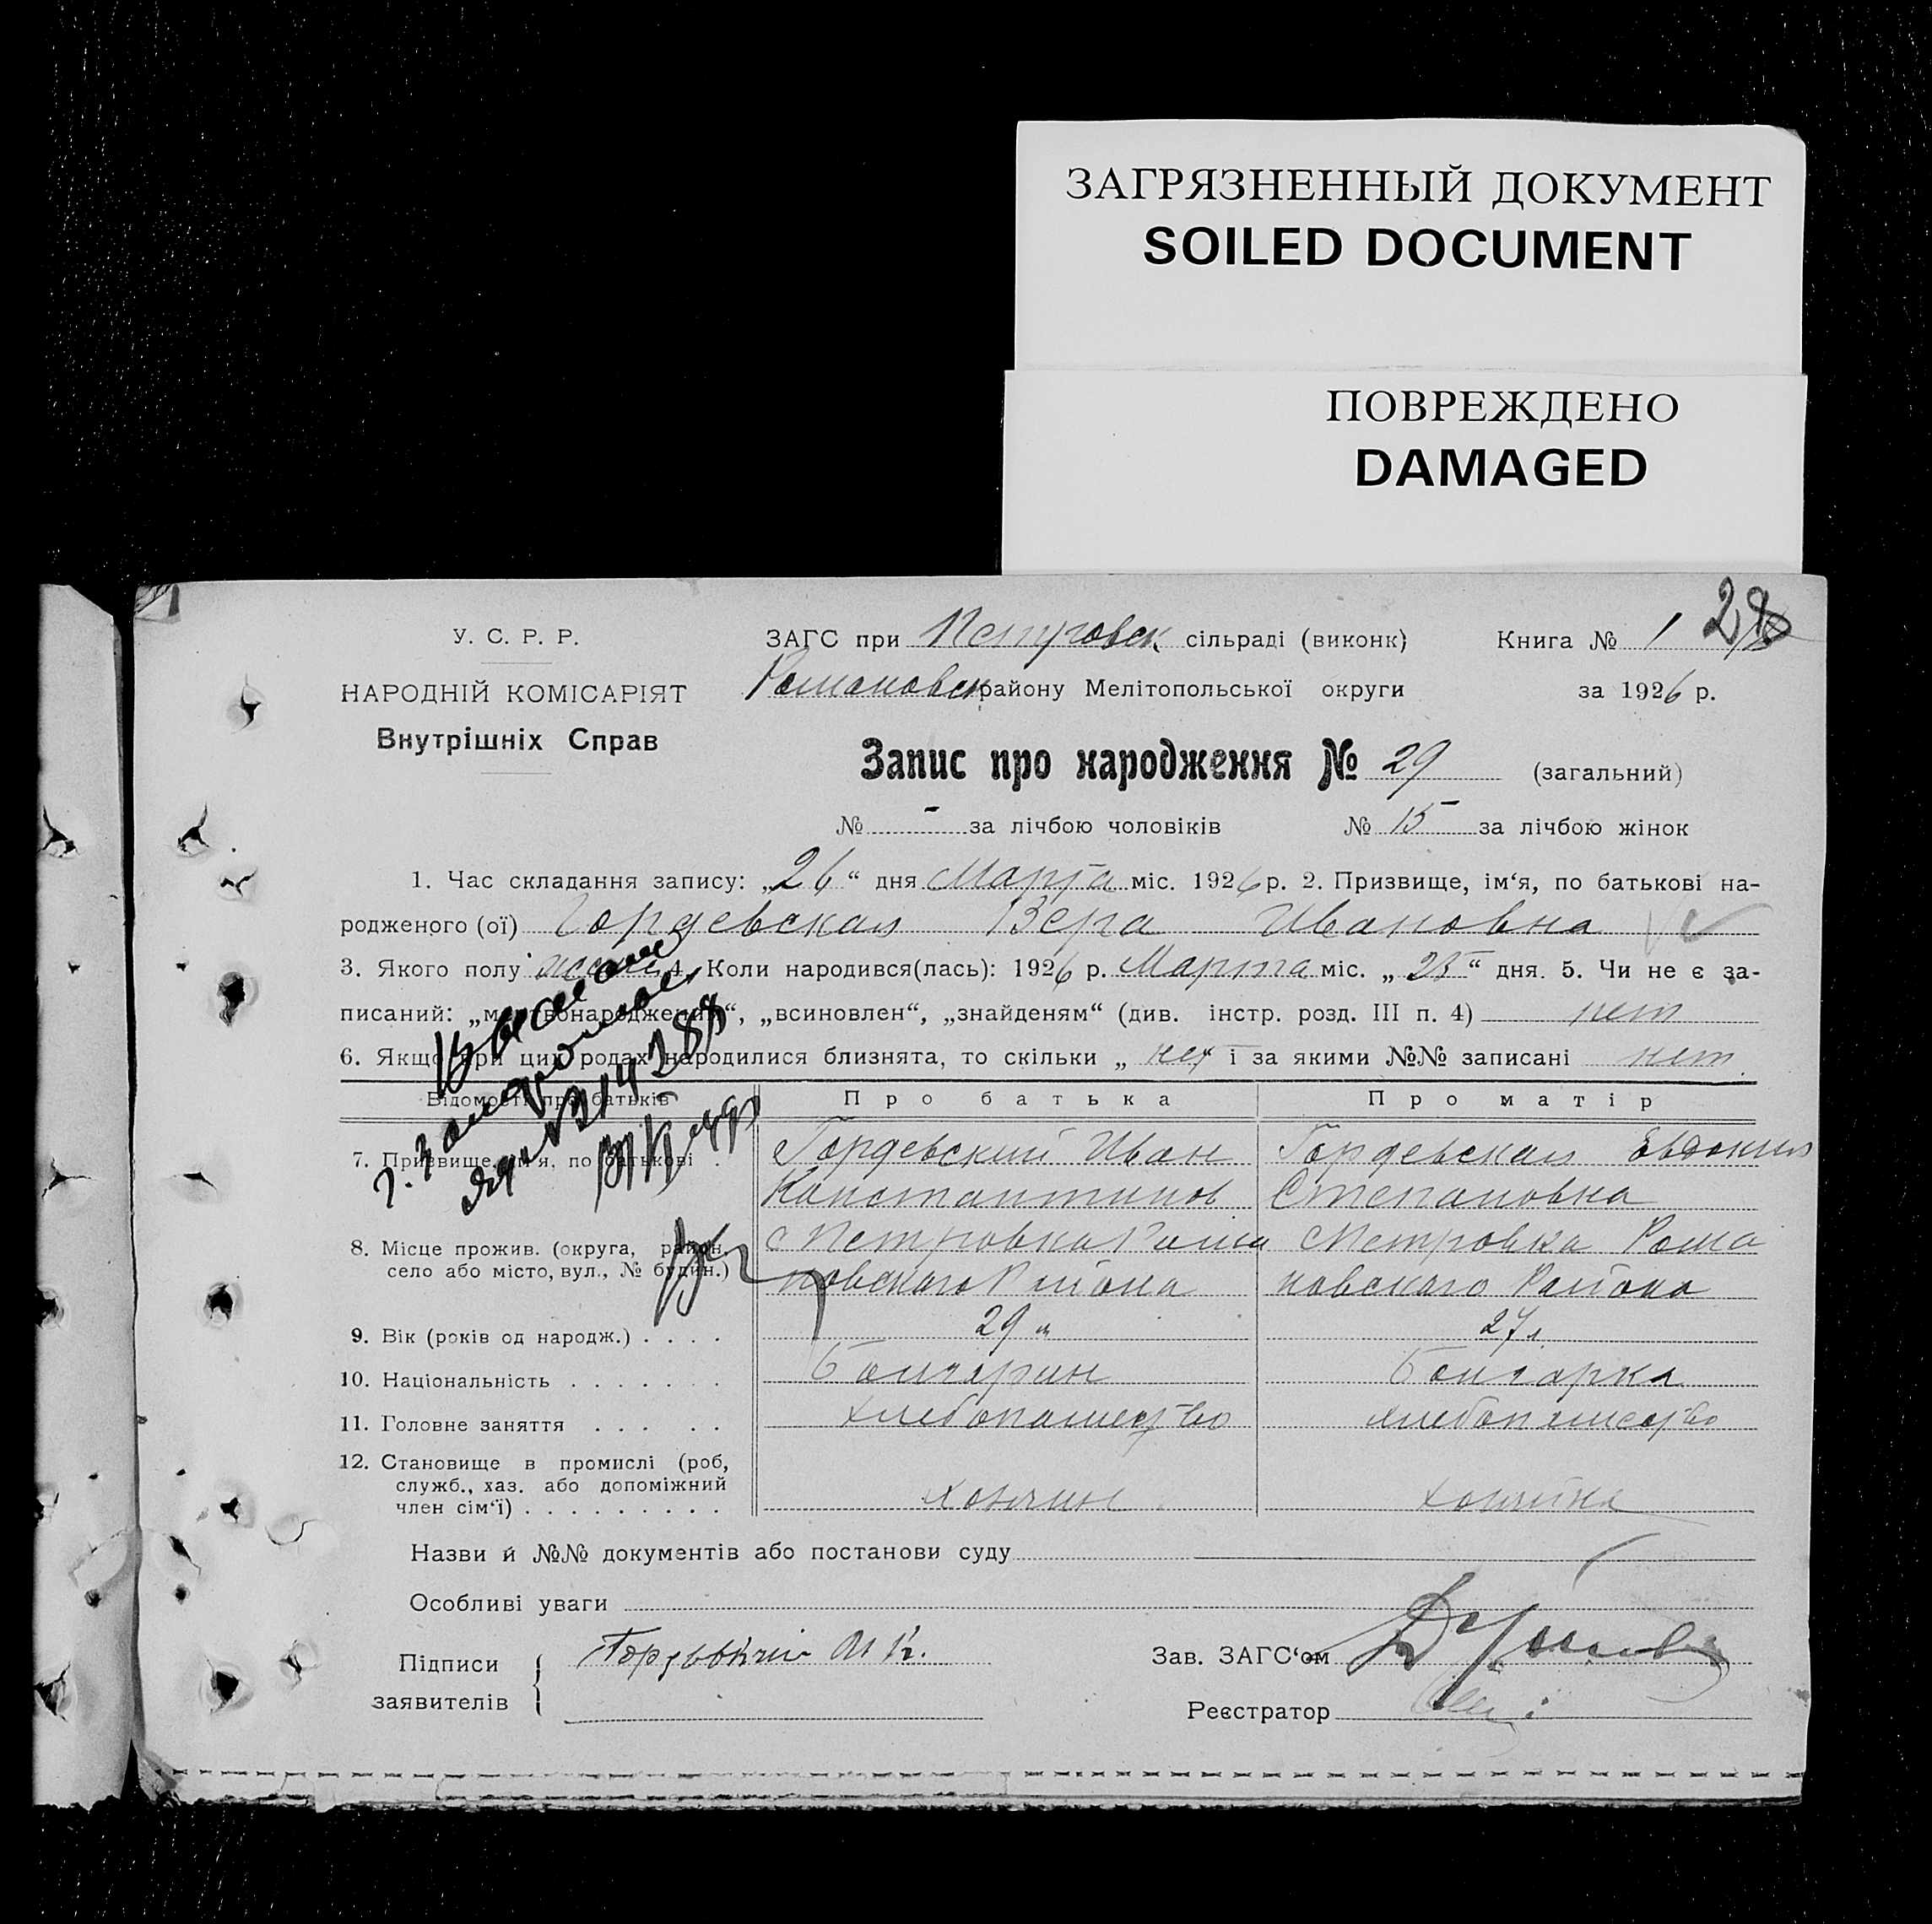 ЗАГРЯЗНЕННЫЙ ДОКУМЕНТ
SOILED DOCUMENT
ПОВРЕЖДЕНО
DAMAGED
У. С. Р. Р.
НАРОДНІЙ КОМІСАРІЯТ
Внутрішніх Справ
ЗАГС при Петровск сільраді (виконк) Книга № 1 28
Романовск району Мелітопольської округи за 1926 р.
Запис про народження № 29 (загальний)
№ - за лічбою чоловіків № 15 за лічбою жінок
1. Час складання запису: „26“ дня Марта міс. 1926 р. 2. Призвище, ім‘я, по батькові на-
родженого (ої) Гордевская Вера Ивановна
3. Якого полу женск 4. Коли народився(лась): 1926 р. Марта міс. „25“ дня. 5. Чи не є за-
писаний: „мертвонароджений“, „всиновлен“, „знайденям“ (див. інстр. розд. III п. 4) нет
6. Якщо при цих родах народилися близнята, то скільки „ нет і за якими №№ записані нет
Відомости про батьків Про батька Про матір
7. Призвище, ім‘я, по батькові . Гордевский Иван Гордевская Евдокия
Константинов Степановна
8. Місце прожив. (округа, район, с Петровка Рома с Петровка Рома
село або місто, вул., № будин.) новского Района новского Района
9. Вік (років од народж.) . . . . 29 л 27 л
10. Національність . . . . . . . Болгарин Болгарка
11. Головне заняття . . . . . Хлебопашество хлебопашество
12. Становище в промислі (роб,
служб., хаз. або допоміжний
член сім‘ї) . . . . . . . . . хозяин хозяйка
Назви й №№ документів або постанови суду
Особливі уваги
Підписи
заявителів
Гордевский И К.
Зав. ЗАГС‘ом
Реєстратор